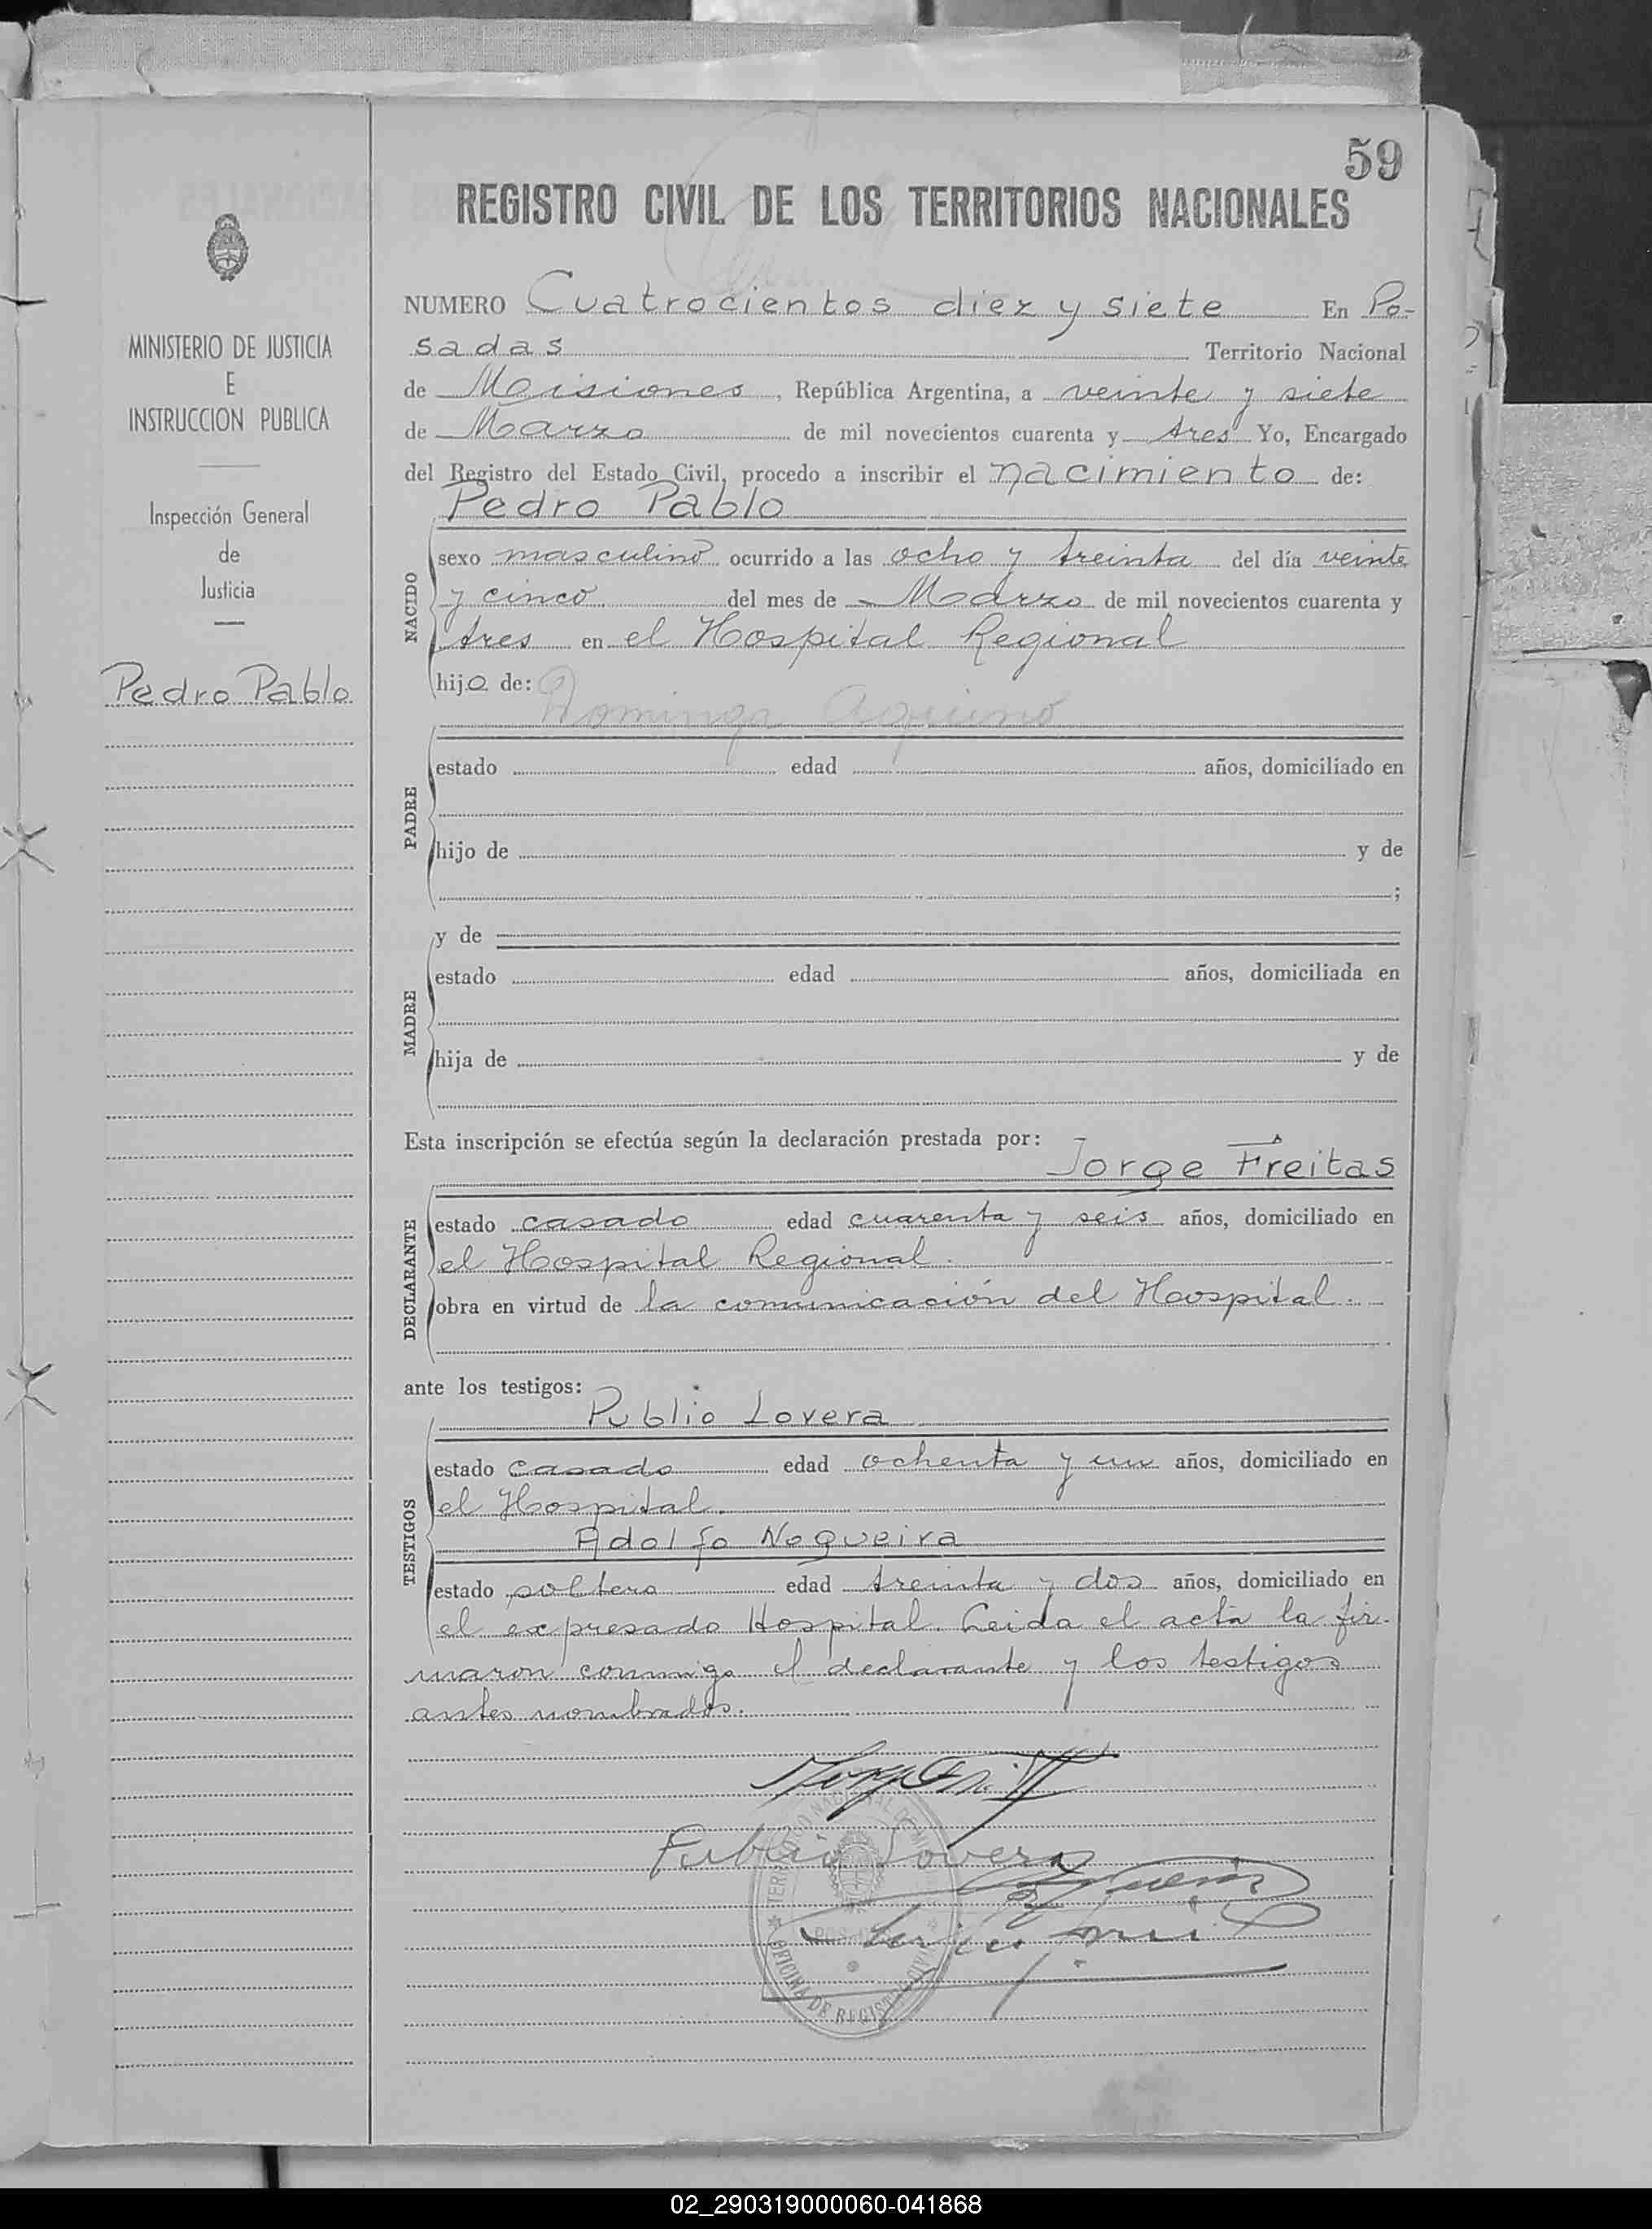 59
REGISTRO CIVIL DE LOS TERRITORIOS NACIONALES
MINISTERIO DE JUSTICIA
E
INSTRUCCION PUBLICA
Inspección General
de
Justicia
Pedro Pablo
NUMERO Cuatrocientos diez y siete En Po-
sadas Territorio Nacional
de Misiones, República Argentina, a veinte y siete
de Marzo de mil novecientos cuarenta y tres Yo, Encargado
del Registro del Estado Civil, procedo a inscribir el nacimiento de:
Pedro Pablo
NACIDO
sexo masculino ocurrido a las ocho y treinta del día veinte
y cinco del mes de Marzo de mil novecientos cuarenta y
tres en el Hospital Regional
hijo de:
Aquino
PADRE
estado edad años, domiciliado en
hijo de y de
;
y de
MADRE
estado edad años, domiciliada en
hija de y de
Esta inscripción se efectúa según la declaración prestada por:
Jorge Freitas
DECLARANTE
estado casado edad cuarenta y seis años, domiciliado en
el Hospital Regional.
obra en virtud de la comunicación del Hospital.
ante los testigos:
Publio Lovera
TESTIGOS
estado casado edad ochenta y un años, domiciliado en
el Hospital.
Adolfo Nogueira
estado soltero edad treinta y dos años, domiciliado en
el expresado Hospital. Leida el acta la fir-
maron conmigo el declarante y los testigos
antes nombrados.
Publio Lovera
OFICINA DE REGISTRO CIVIL
02_290319000060-041868